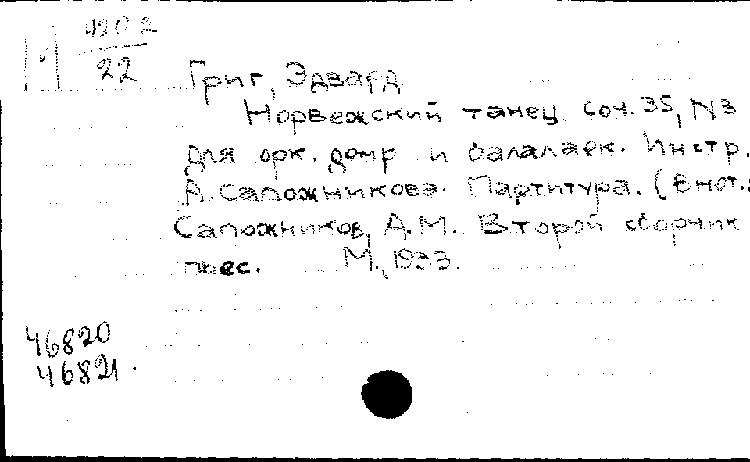 4202
22
Григ, Эдвард
Норвежский танец соч. 35, N3
для орк. домр и балалаек. Инстр.
А. Сапожникова. Партитура. (В нот.:
Сапожников, А.М. Второй сборник
пьес. М., 1933.
46820
46821.